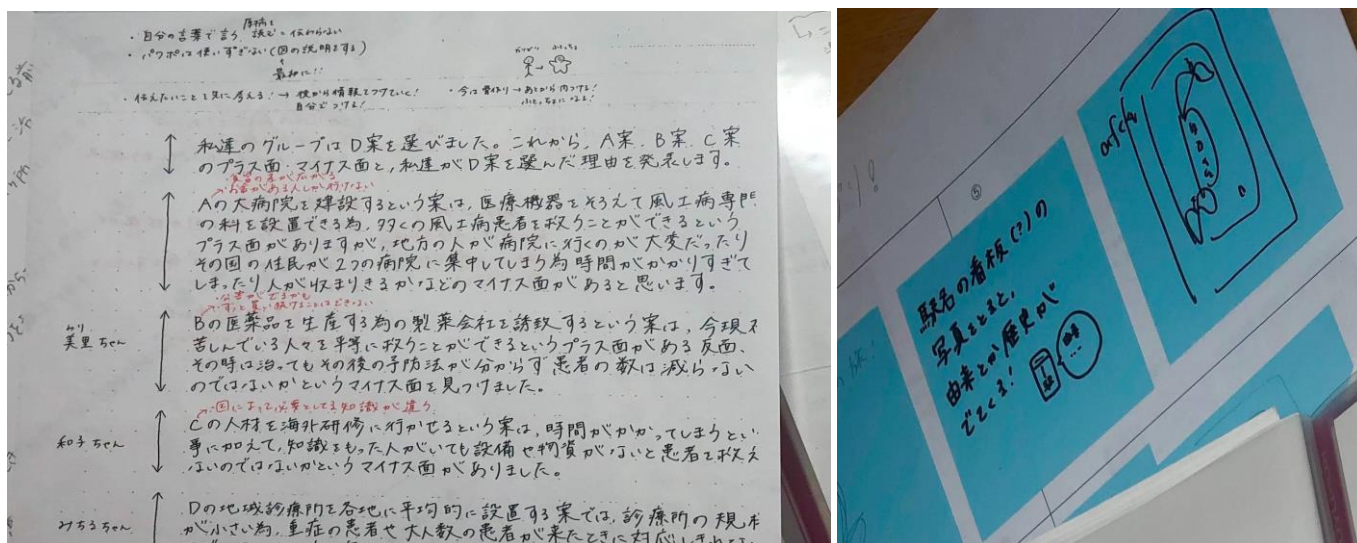 ・自分の言葉で言う 原稿を読む=伝わらない
・パワポは使いすぎない(図の説明をする)
最初に!!
・伝えたいことを先に考える!→後から情報をつけていく!
自分でつける!
・今は骨作り→あとから肉つける!
私達のグループはD案を選びました。これから、A案、B案、C案
のプラス面・マイナス面と、私達がD案を選んだ理由を発表します。
お金がある人しか行けない
Aの大病院を建設するという案は、医療機器をそろえて風土病専門
の科を設置できる為、多くの風土病患者を救うことができるという
プラス面がありますが、地方の人が病院に行くのが大変だったり
その国の住民が2つの病院に集中してしまう為時間がかかりすぎて
しまったり人が収まりきるかなどのマイナス面があると思います。
・公害がでるかも
・ずっと買い続けることはできない
美里ちゃん
Bの医薬品を生産する為の製薬会社を誘致するという案は、今現在
苦しんでいる人々を平等に救うことができるというプラス面がある反面、
その時は治ってもその後の予防法が分からず患者の数は減らない
のではないかというマイナス面を見つけました。
・国によって必要としてる知識が違う
和子ちゃん
Cの人材を海外研修に行かせるという案は、時間がかかってしまうとい
事に加えて、知識をもった人がいても設備や物資がないと患者を救え
ないのではないかというマイナス面がありました。
みちるちゃん
Dの地域診療所を各地に平均的に設置する案では、診療所の規模
が小さい為、重症の患者や大人数の患者が来たときに対応しきれない
⑤
駅名の看板(?)の
写真をとると、
由来とか歴史が
でてくる!